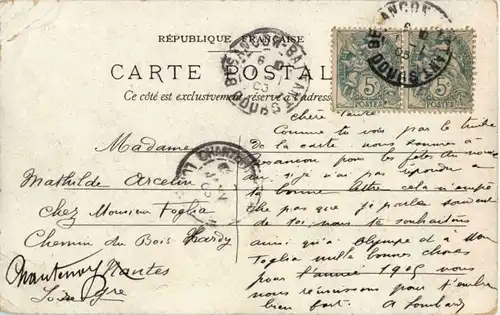 RÉPUBLIQUE FRANÇAISE
CARTE POSTALE
Ce côté est exclusivement réservé à l'adresse
5 5
POSTES POSTES
Chère
Comme tu vois par le timbre
de la carte nous sommes à
Besançon pour les fêtes du
si je n'ai pas répondu à
ta bonne lettre cela n'empê
che pas que je parle souvent
de toi, nous te souhaitons
ainsi qu'à Olympe et à Mr
Foglia mille bonnes choses
pour l'année 1905 nous
nous réunissons pour t'embras
bien fort. A Lombard
Madame
Mathilde Arcelin
chez Monsieur Foglia
Chemin du Bois Hardy
Chantenay Nantes
Loire